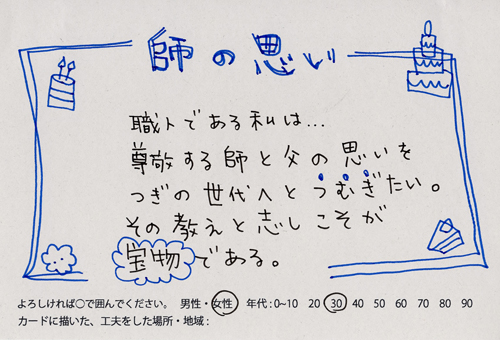 師の思い
職人である私は…
尊敬する師と父の思いを
つぎの世代へとつむぎたい。
その教えと志しこそが
宝物である。
よろしければ○で囲んでください。 男性・女性 年代:0~10 20 30 40 50 60 70 80 90
カードに描いた、工夫をした場所・地域: